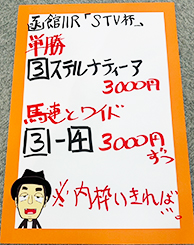 函館11R「STV杯」
単勝
3ステルナティーア
3000円
馬連とワイド
3-4 3000円
ずつ
※内枠いきれば…。